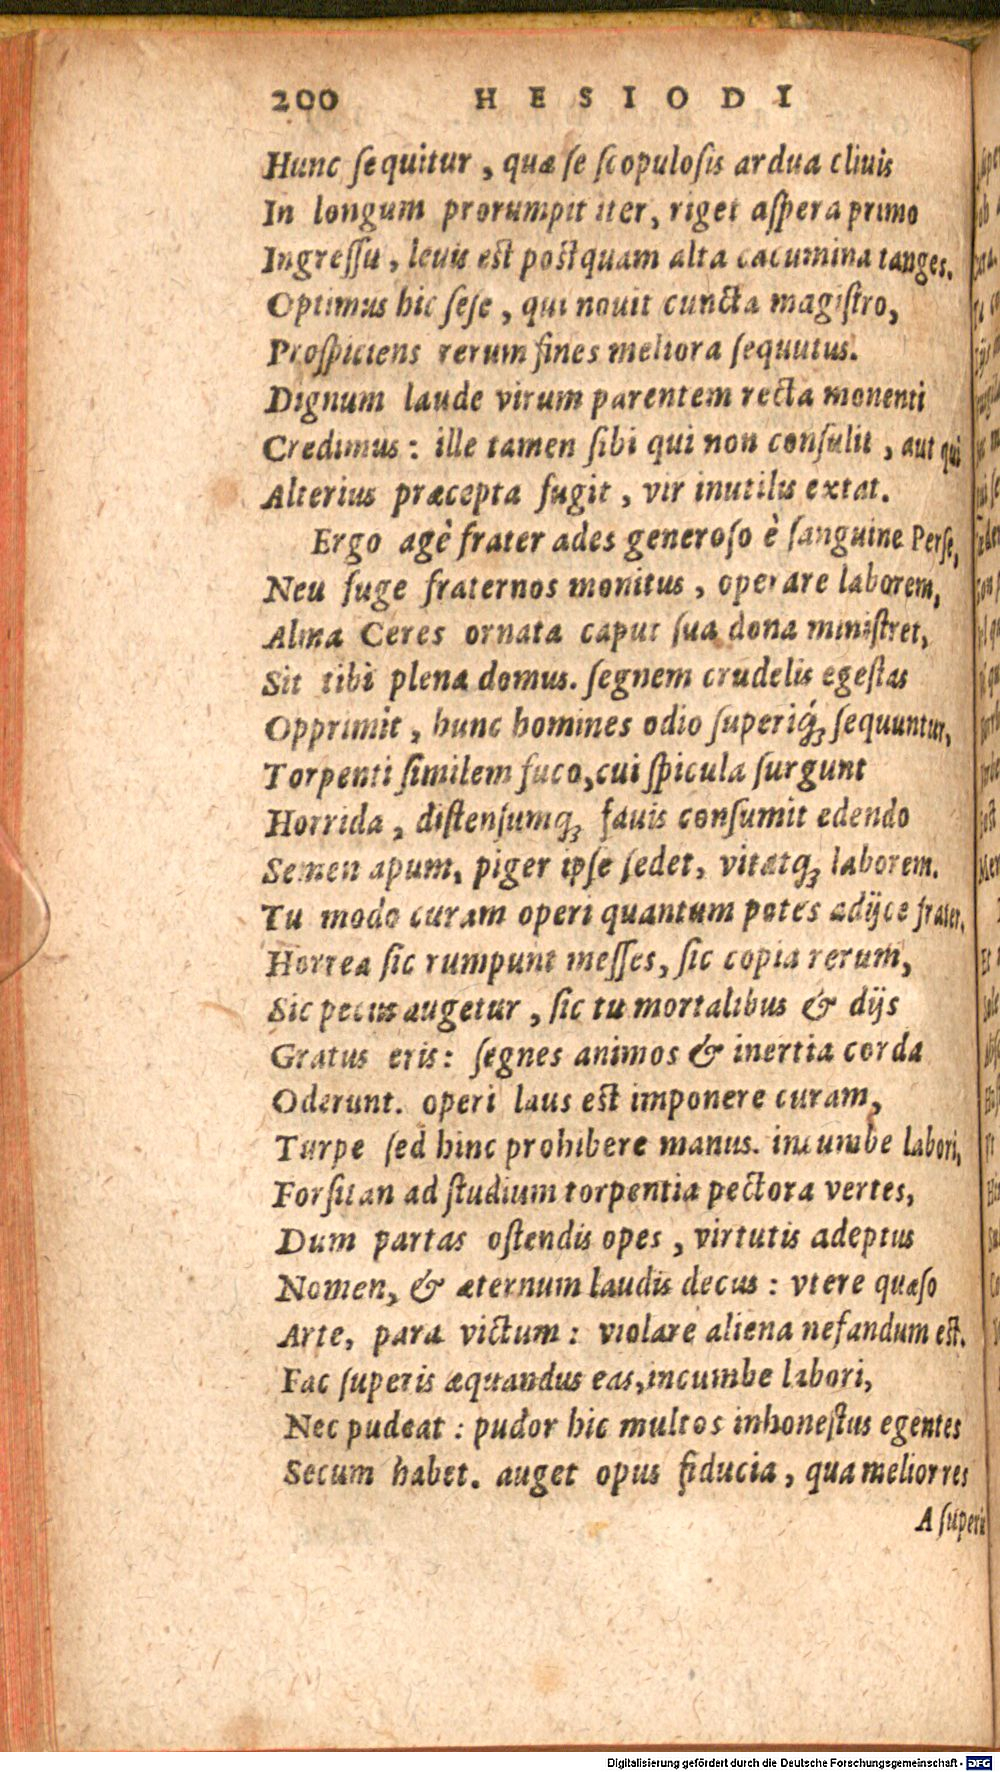 200 HESIODI
Hunc ſequitur, quæ ſe ſcopuloſis ardua cliuis
In longum prorumpit iter, riget aſpera primo
Ingreſſu, leuis est postquam alta cacumina tanges.
Optimus hic ſeſe, qui nouit cuncta magiſtro,
Proſpiciens rerum fines meliora ſequutus.
Dignum laude virum parentem recta monenti
Credimus: ille tamen ſibi qui non conſulit, aut qui
Alterius præcepta fugit, vir inutilis extat.
Ergo agè frater ades generoſo è ſanguine Perſe,
Neu fuge fraternos monitus, operare laborem,
Alma Ceres ornata caput ſua dona miniſtret,
Sit tibi plena domus. ſegnem crudelis egeſtas
Opprimit, hunc homines odio ſuperiq́ꝫ ſequuntur,
Torpenti ſimilem fuco, cui ſpicula ſurgunt
Horrida, diſtenſumqꝫ fauis conſumit edendo
Semen apum, piger ipſe ſedet, vitatqꝫ laborem.
Tu modo curam operi quantum potes adijce frater,
Horrea ſic rumpunt meſſes, ſic copia rerum,
Sic pecus augetur, ſic tu mortalibus & dijs
Gratus eris: ſegnes animos & inertia corda
Oderunt. operi laus est imponere curam,
Turpe ſed hinc prohibere manus. incumbe labori,
Forſitan ad ſtudium torpentia pectora vertes,
Dum partas oſtendis opes, virtutis adeptus
Nomen, & æternum laudis decus: vtere quæſo
Arte, para victum: violare aliena nefandum est.
Fac ſuperis æquandus eas, incumbe labori,
Nec pudeat: pudor hic multos inhoneſtus egentes
Secum habet. auget opus fiducia, qua melior res
A ſuperis
Digitalisierung gefördert durch die Deutsche Forschungsgemeinschaft - DFG